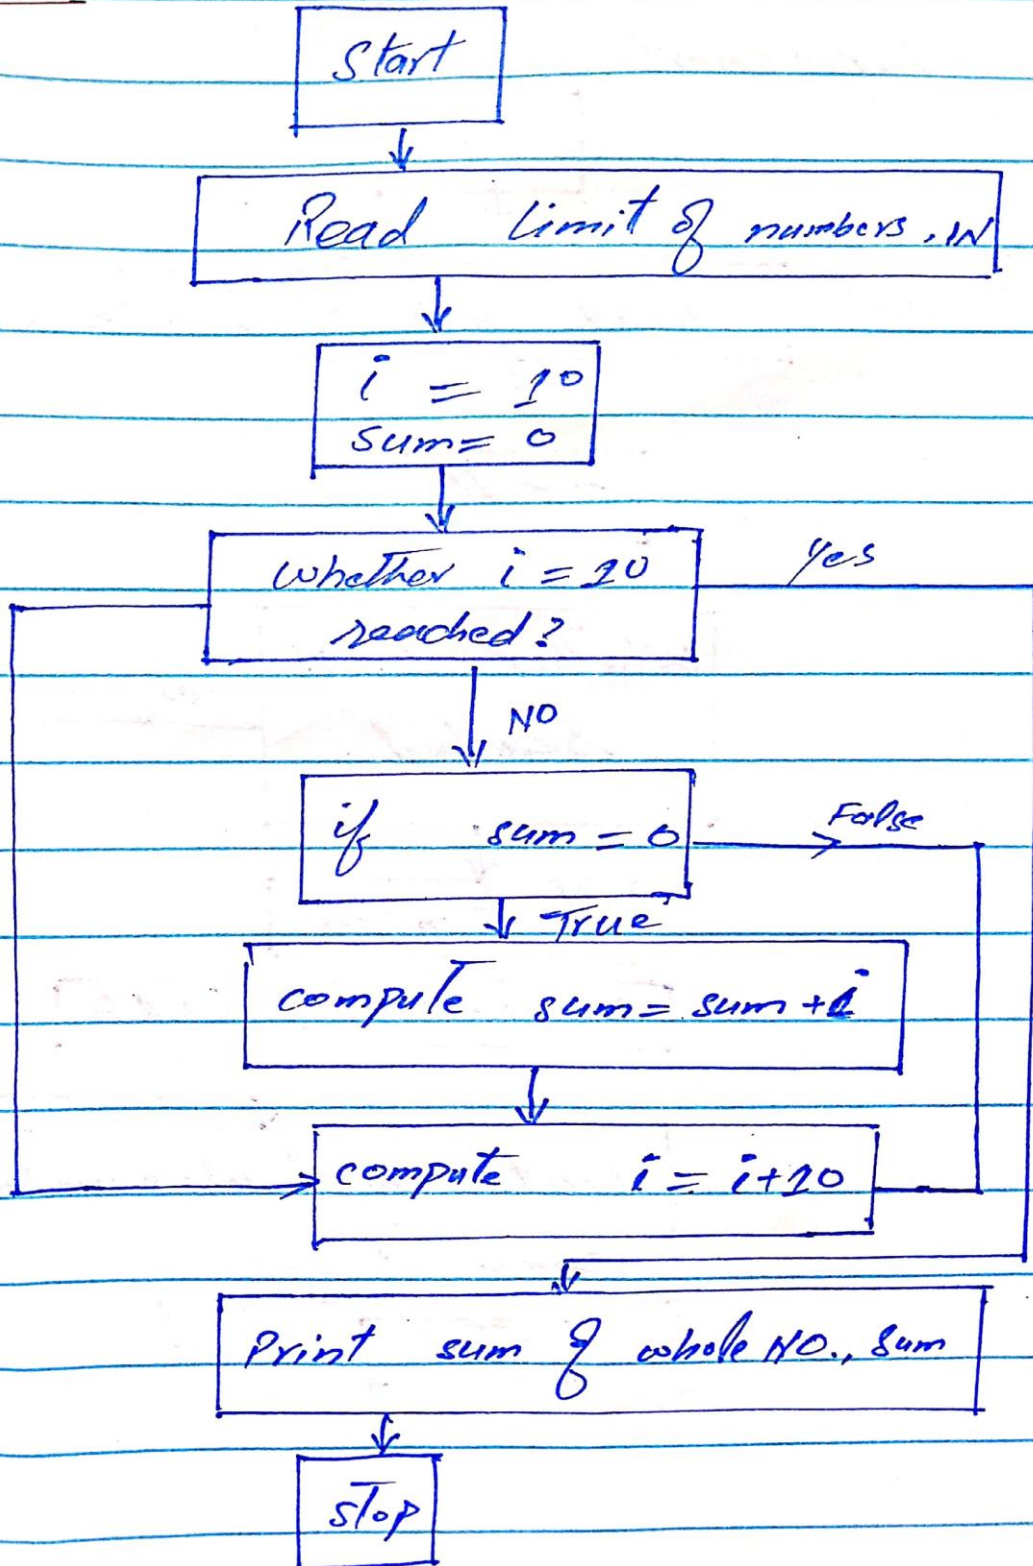 Start
Read Limit of numbers, IN
i = 10
sum = 0
whether i = 10 Yes
reached?
NO
if sum = 0 False
True
compute sum = sum + i
compute i = i+10
Print sum of whole NO., Sum
stop